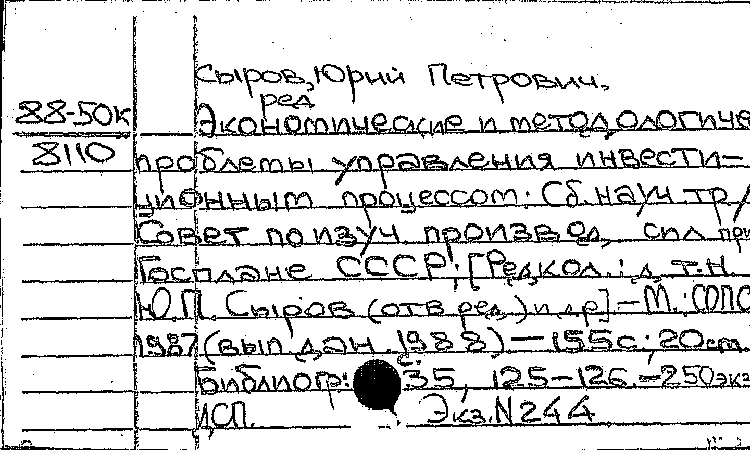 Сыров, Юрий Петрович,
ред
88-50к
8110
Экономические и методологиче
проблемы управления инвести-
ционным процессом: Сб. науч. тр/
Совет по изуч. производ. сил при
Госплане СССР; [Редкол.: д. т. н.
Ю.П. Сыров (отв ред.) и др] — М.: СОПС
1987 (вып. дан. 1988) — 155с; 20см.
Библиогр: с. 35, 125-126. — 250экз
ДСП. Экз. N 244